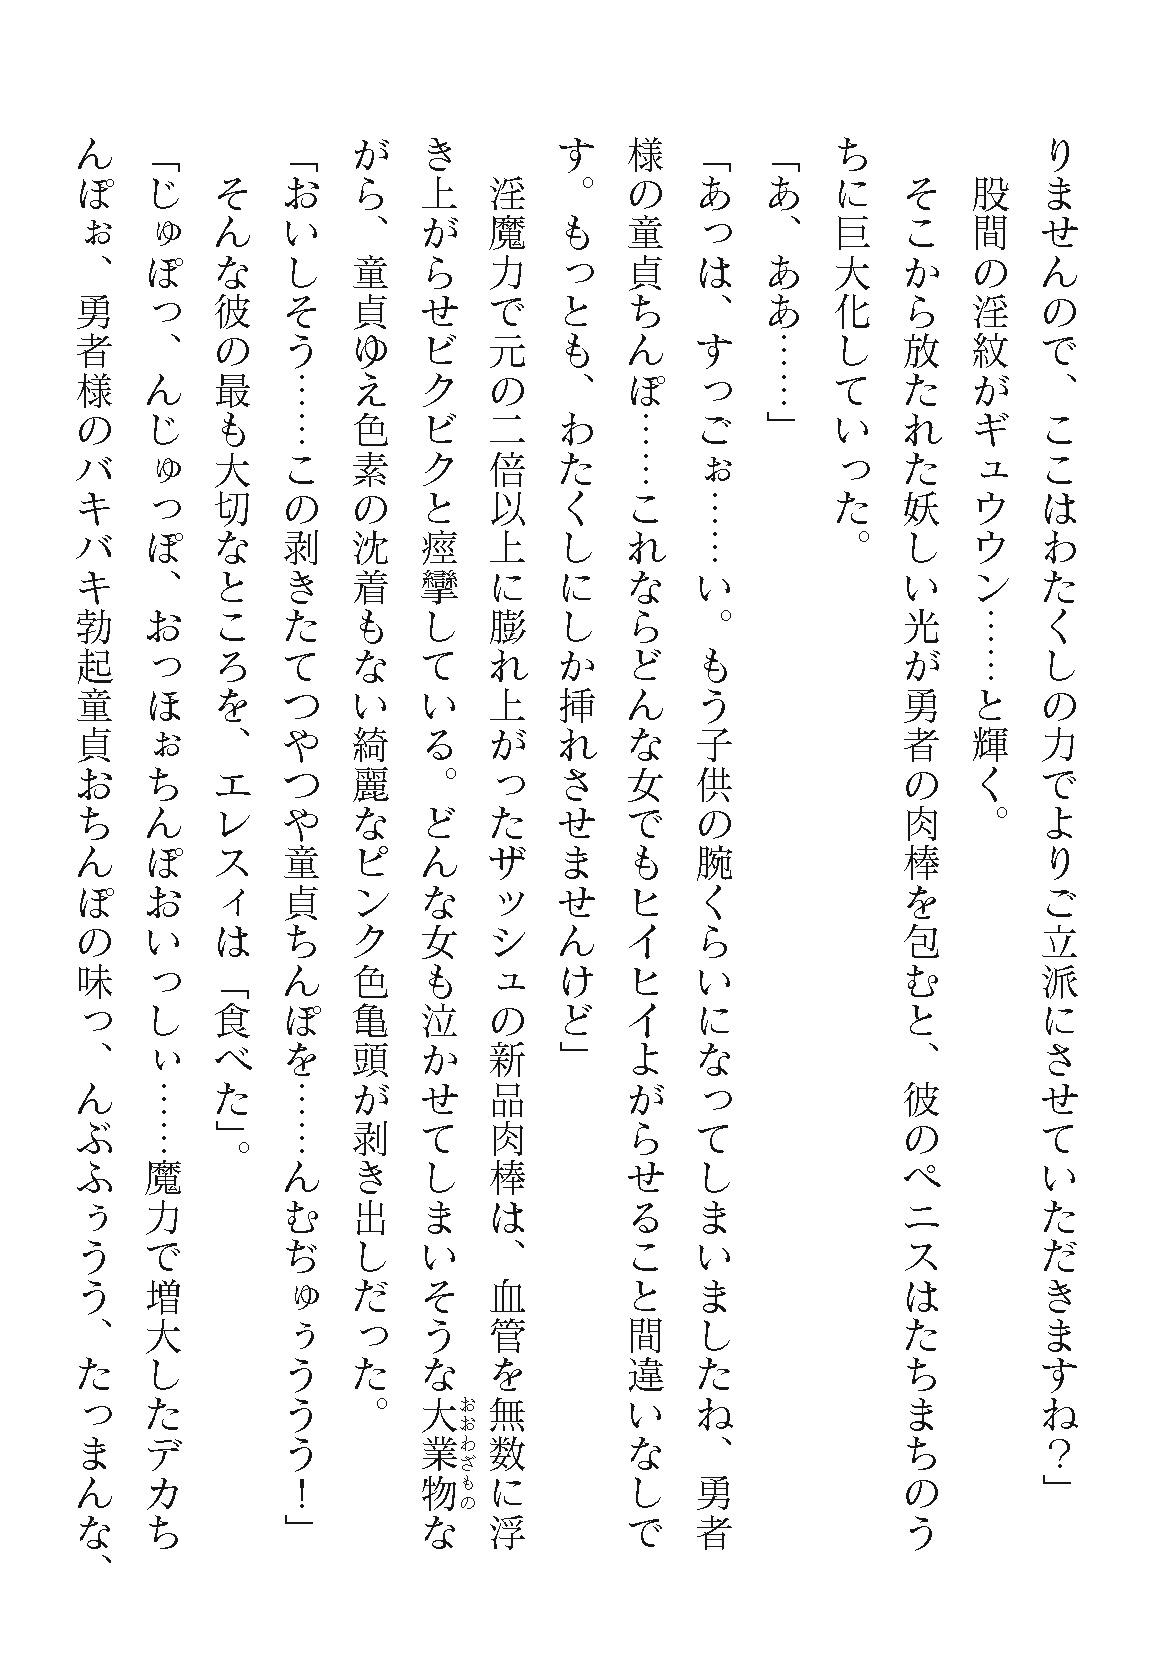 りませんので、ここはわたくしの力でよりご立派にさせていただきますね？」
股間の淫紋がギュウウン……と輝く。
そこから放たれた妖しい光が勇者の肉棒を包むと、彼のペニスはたちまちのう
ちに巨大化していった。
「あ、ああ……」
「あっは、すっごぉ……い。もう子供の腕くらいになってしまいましたね、勇者
様の童貞ちんぽ……これならどんな女でもヒイヒイよがらせること間違いなしで
す。もっとも、わたくしにしか挿れさせませんけど」
淫魔力で元の二倍以上に膨れ上がったザッシュの新品肉棒は、血管を無数に浮
き上がらせビクビクと痙攣している。どんな女も泣かせてしまいそうな大業物な
おおわざもの
がら、童貞ゆえ色素の沈着もない綺麗なピンク色亀頭が剥き出しだった。
「おいしそう……この剥きたてつやつや童貞ちんぽを……んむぢゅぅううう！」
そんな彼の最も大切なところを、エレスィは「食べた」。
「じゅぽっ、んじゅっぽ、おっほぉちんぽおいっしぃ……魔力で増大したデカち
んぽぉ、勇者様のバキバキ勃起童貞おちんぽの味っ、んぶふぅうう、たっまんな、